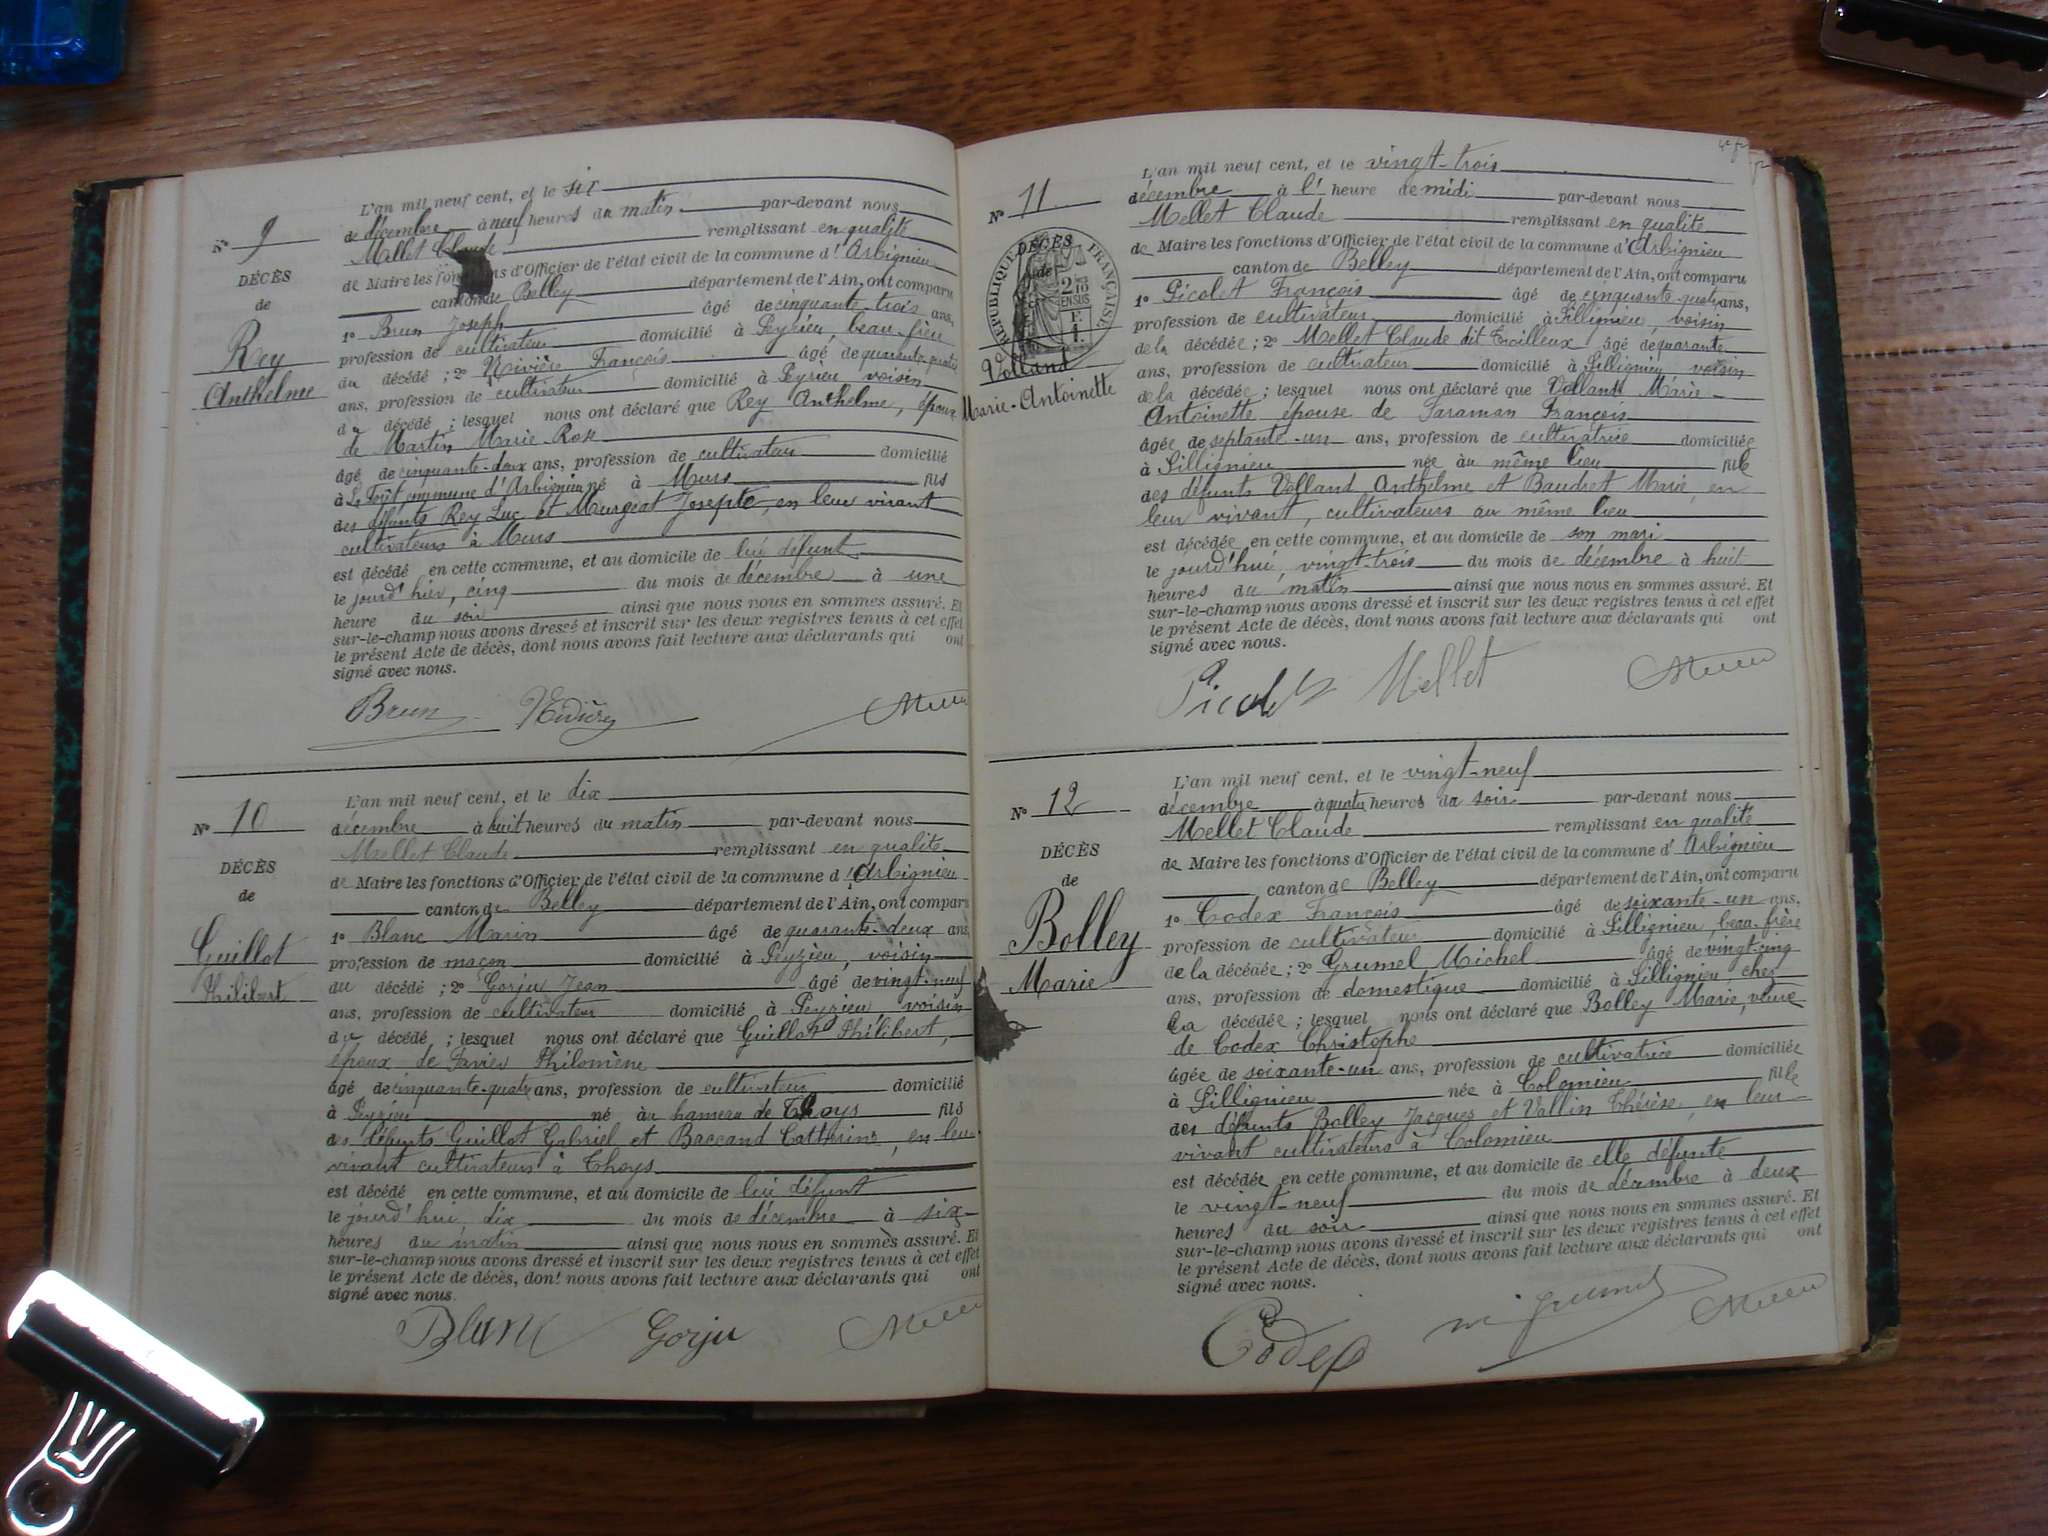 N° 9
DÉCÈS
de
Rey
Anthelme
L'an mil neuf cent, et le six
de décembre à neuf heures du matin par-devant nous
Mellet Claude remplissant en qualité
de Maire les fonctions d'Officier de l'état civil de la commune d'Arbignieu
canton de Belley département de l'Ain, ont comparu
1° Brun Joseph âgé de cinquante-trois ans,
profession de cultivateur domicilié à Peyzieu, beau-frère
du décédé ; 2° Rivière François âgé de quarante-quatre
ans, profession de cultivateur domicilié à Peyzieu, voisin
du décédé ; lesquel nous ont déclaré que Rey Anthelme, époux
de Martin Marie-Rose
âgé de cinquante-deux ans, profession de cultivateur domicilié
à commune d'Arbignieu né à Murs fils
des défunts Rey Luc et Murgeat Josepte, en leur vivant
cultivateurs à Murs
est décédé en cette commune, et au domicile de lui défunt
le jourd'hier, cinq du mois de décembre à une
heure du soir ainsi que nous nous en sommes assuré. Et
sur-le-champ nous avons dressé et inscrit sur les deux registres tenus à cet effet
le présent Acte de décès, dont nous avons fait lecture aux déclarants qui ont
signé avec nous.
Brun Rivière
N° 10
DÉCÈS
de
Guillot
Philibert
L'an mil neuf cent, et le dix
décembre à huit heures du matin par-devant nous
Mellet Claude remplissant en qualité
de Maire les fonctions d'Officier de l'état civil de la commune d'Arbignieu
canton de Belley département de l'Ain, ont comparu
1° Blanc Marin âgé de quarante-deux ans,
profession de maçon domicilié à Peyzieu, voisin
du décédé ; 2° Gorju Jean âgé de vingt-neuf
ans, profession de cultivateur domicilié à Peyzieu, voisin
du décédé ; lesquel nous ont déclaré que Guillot Philibert,
époux de Philomène
âgé de cinquante-quatre ans, profession de cultivateur domicilié
à Peyzieu né au hameau de Thoys fils
des défunts Guillot Gabriel et Baccand Catherine, en leur
vivant cultivateurs à Thoys
est décédé en cette commune, et au domicile de lui défunt
le jourd'hui dix du mois de décembre à six
heures du matin ainsi que nous nous en sommes assuré. Et
sur-le-champ nous avons dressé et inscrit sur les deux registres tenus à cet effet
le présent Acte de décès, dont nous avons fait lecture aux déclarants qui ont
signé avec nous.
Blanc Gorju
N° 11
DÉCÈS
de
RÉPUBLIQUE FRANÇAISE
2/10 EN SUS
Volland
Marie-Antoinette
L'an mil neuf cent, et le vingt-trois
décembre à l'heure de midi par-devant nous
Mellet Claude remplissant en qualité
de Maire les fonctions d'Officier de l'état civil de la commune d'Arbignieu
canton de Belley département de l'Ain, ont comparu
1° Picolet François âgé de cinquante-quatre ans,
profession de cultivateur domicilié à Sillignieu, voisin
de la décédée ; 2° Mellet Claude dit âgé de quarante
ans, profession de cultivateur domicilié à Sillignieu, voisin
de la décédée ; lesquel nous ont déclaré que Volland Marie-
Antoinette épouse de Taraman François
âgée de septante-un ans, profession de cultivatrice domiciliée
à Sillignieu née au même lieu fille
des défunts Volland Anthelme et Baudret Marie, en
leur vivant, cultivateurs au même lieu
est décédée en cette commune, et au domicile de son mari
le jourd'hui, vingt-trois du mois de décembre à huit
heures du matin ainsi que nous nous en sommes assuré. Et
sur-le-champ nous avons dressé et inscrit sur les deux registres tenus à cet effet
le présent Acte de décès, dont nous avons fait lecture aux déclarants qui ont
signé avec nous.
Picolet Mellet
N° 12
DÉCÈS
de
Bolley
Marie
L'an mil neuf cent, et le vingt-neuf
décembre à quatre heures du soir par-devant nous
Mellet Claude remplissant en qualité
de Maire les fonctions d'Officier de l'état civil de la commune d'Arbignieu
canton de Belley département de l'Ain, ont comparu
1° Codex François âgé de soixante-un ans,
profession de cultivateur domicilié à Sillignieu, beau-frère
de la décédée ; 2° Grumel Michel âgé de vingt-cinq
ans, profession de domestique domicilié à Sillignieu chez
la décédée ; lesquel nous ont déclaré que Bolley Marie, veuve
de Codex Christophe
âgée de soixante-un ans, profession de cultivatrice domiciliée
à Sillignieu née à Colomieu fille
des défunts Bolley Jacques et Vallin Thérèse, en leur
vivant cultivateurs à Colomieu
est décédée en cette commune, et au domicile de elle défunte
le vingt-neuf du mois de décembre à deux
heures du soir ainsi que nous nous en sommes assuré. Et
sur-le-champ nous avons dressé et inscrit sur les deux registres tenus à cet effet
le présent Acte de décès, dont nous avons fait lecture aux déclarants qui ont
signé avec nous.
Codex m grumel